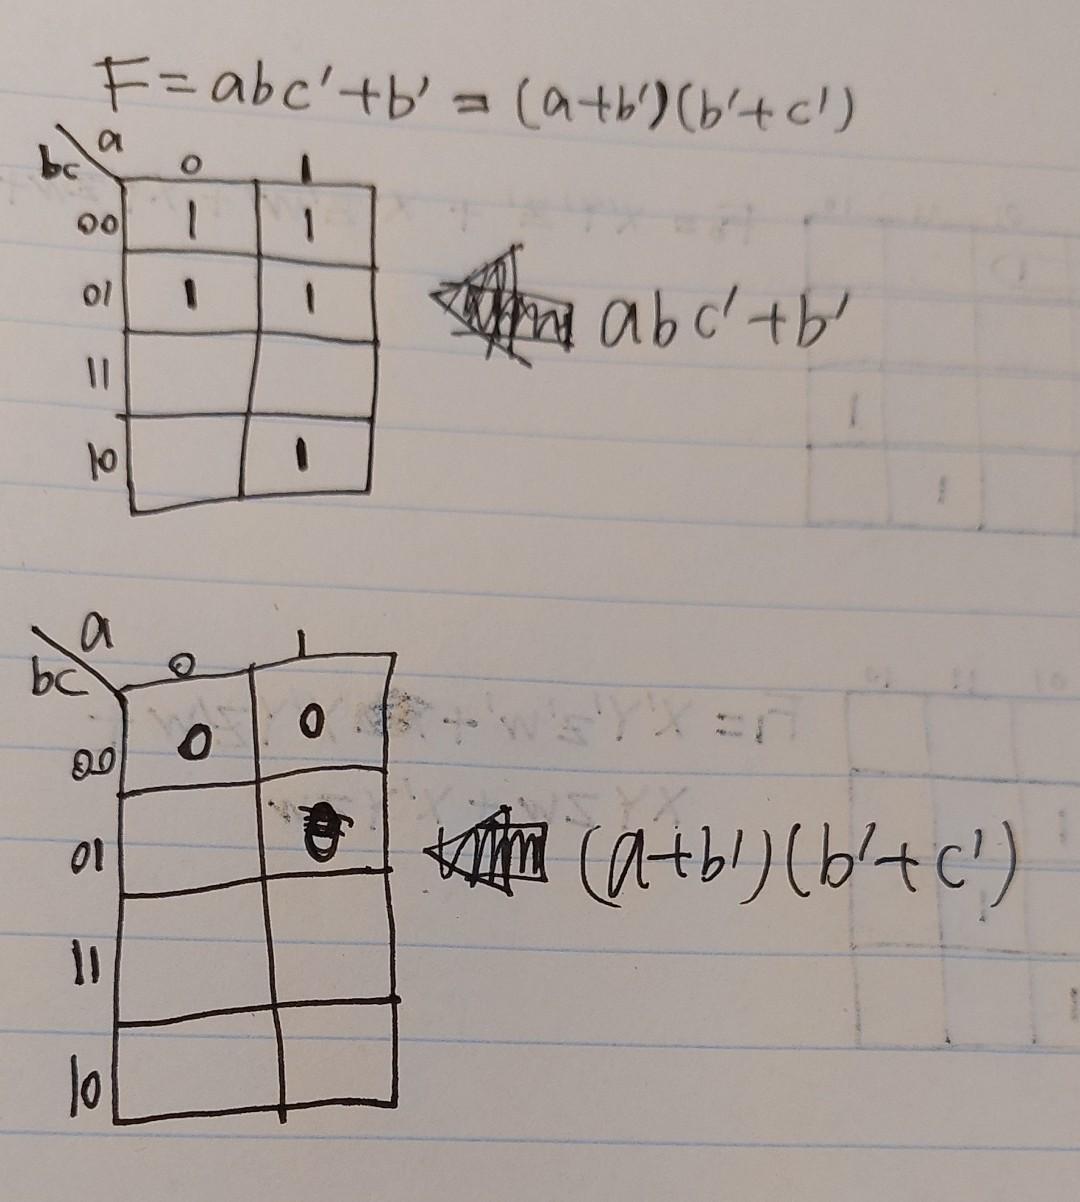 F = abc' + b' = (a+b')(b'+c')
a
bc 0 1
00 1 1
01 1 1
abc' + b'
11
10 1
a
bc 0 1
00 0 0
01
(a+b')(b'+c')
11
10